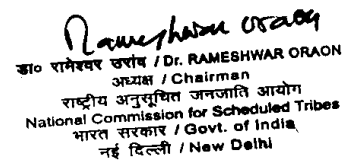 Rameshwar Oraon
डा० रामेश्वर उरांव / Dr. RAMESHWAR ORAON
अध्यक्ष / Chairman
राष्ट्रीय अनुसूचित जनजाति आयोग
National Commission for Scheduled Tribes
भारत सरकार / Govt. of India
नई दिल्ली / New Delhi